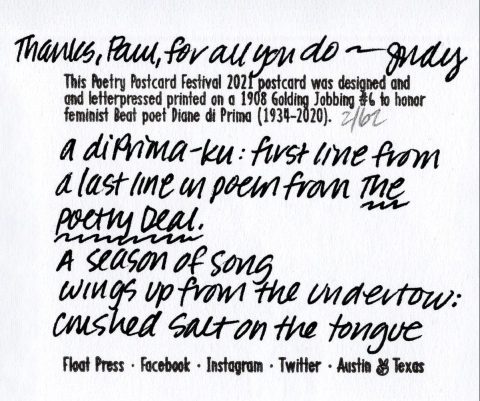 Thanks, Paul, for all you do ~ Judy
This Poetry Postcard Festival 2021 postcard was designed and
and letterpressed printed on a 1908 Golding Jobbing #6 to honor
feminist Beat poet Diane di Prima (1934-2020). 2/62
a diPrima-ku: first line from
a last line in poem from The
Poetry Deal.
A season of song
wings up from the undertow:
crushed salt on the tongue
Float Press · Facebook · Instagram · Twitter · Austin Texas